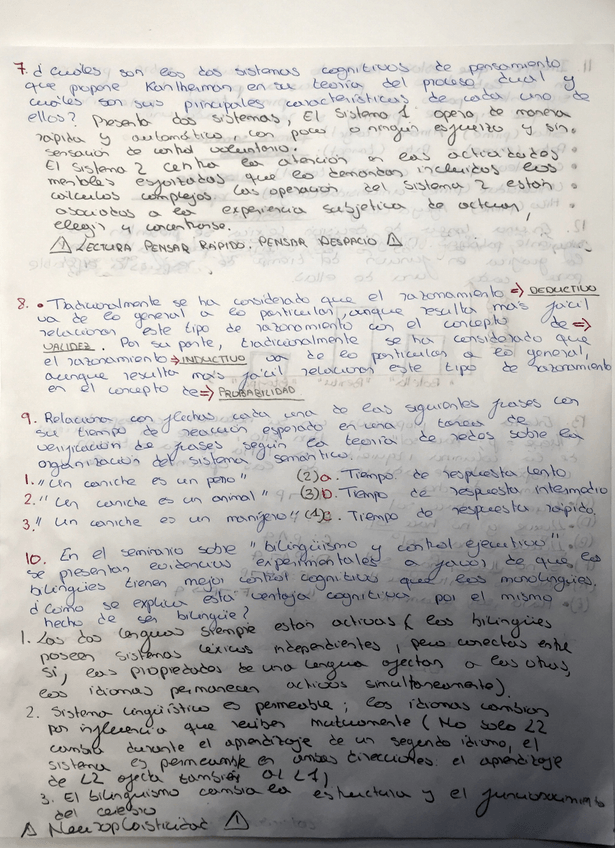 7. ¿Cuáles son los dos sistemas cognitivos de pensamiento
que propone Kanlheman en su teoría del proceso dual y
cuáles son sus principales características de cada uno de
ellos? Presenta dos sistemas, El Sistema 1 opera de manera
rápida y automática, con poco o ningún esfuerzo y sin
sensación de control voluntario.
El sistema 2 centra la atención en las actividades
mentales esforzadas que lo demandan, incluidos los
cálculos complejos. Las operación del sistema 2 están
asociadas a la experiencia subjetiva de actuar,
elegir y concentrarse.
⚠ LECTURA PENSAR RÁPIDO. PENSAR DESPACIO ⚠
8. • Tradicionalmente se ha considerado que el razonamiento => DEDUCTIVO
va de lo general a lo particular, aunque resulta más fácil
relacionar este tipo de razonamiento con el concepto de =>
VALIDEZ. Por su parte, tradicionalmente se ha considerado que
el razonamiento => INDUCTIVO va de lo particular a lo general,
aunque resulta más fácil relacionar este tipo de razonamiento
en el concepto de => PROBABILIDAD
9. Relaciona con flechas cada una de las siguientes frases con
su tiempo de reacción esperado en una tarea de
verificación de frases según la teoría de redes sobre la
organización del sistema semántico.
1. "Un caniche es un perro" (2) a. Tiempo de respuesta lento
2. "Un caniche es un animal" (3) b. Tiempo de respuesta intermedio
3. "Un caniche es un mamífero" (1) c. Tiempo de respuesta rápido.
10. En el seminario sobre "bilingüismo y control ejecutivo"
se presentan evidencias experimentales a favor de que los
bilingües tienen mejor control cognitivo que los monolingües,
¿cómo se explica esta ventaja cognitiva por el mismo
hecho de ser bilingüe?
1. Las dos lenguas siempre están activas (los bilingües
poseen sistemas léxicos independientes, pero conectas entre
sí, las propiedades de una lengua afectan a las otras,
los idiomas permanecen activos simultaneamente).
2. Sistema lingüístico es permeable; los idiomas cambian
por influencia que reciben mutuamente (No solo L2
cambia durante el aprendizaje de un segundo idioma, el
sistema es permeable en ambas direcciones: el aprendizaje
de L2 afecta también al L1)
3. El bilingüismo cambia la estructura y el funcionamiento
del cerebro
⚠ Neuroplasticidad ⚠